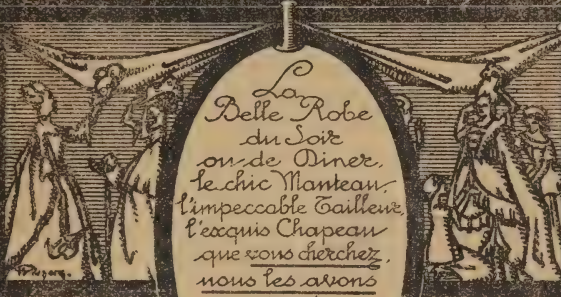 La
Belle Robe
du Soir
ou de Diner,
le chic Manteau,
l'impeccable Tailleur,
l'exquis Chapeau
que vous cherchez,
nous les avons